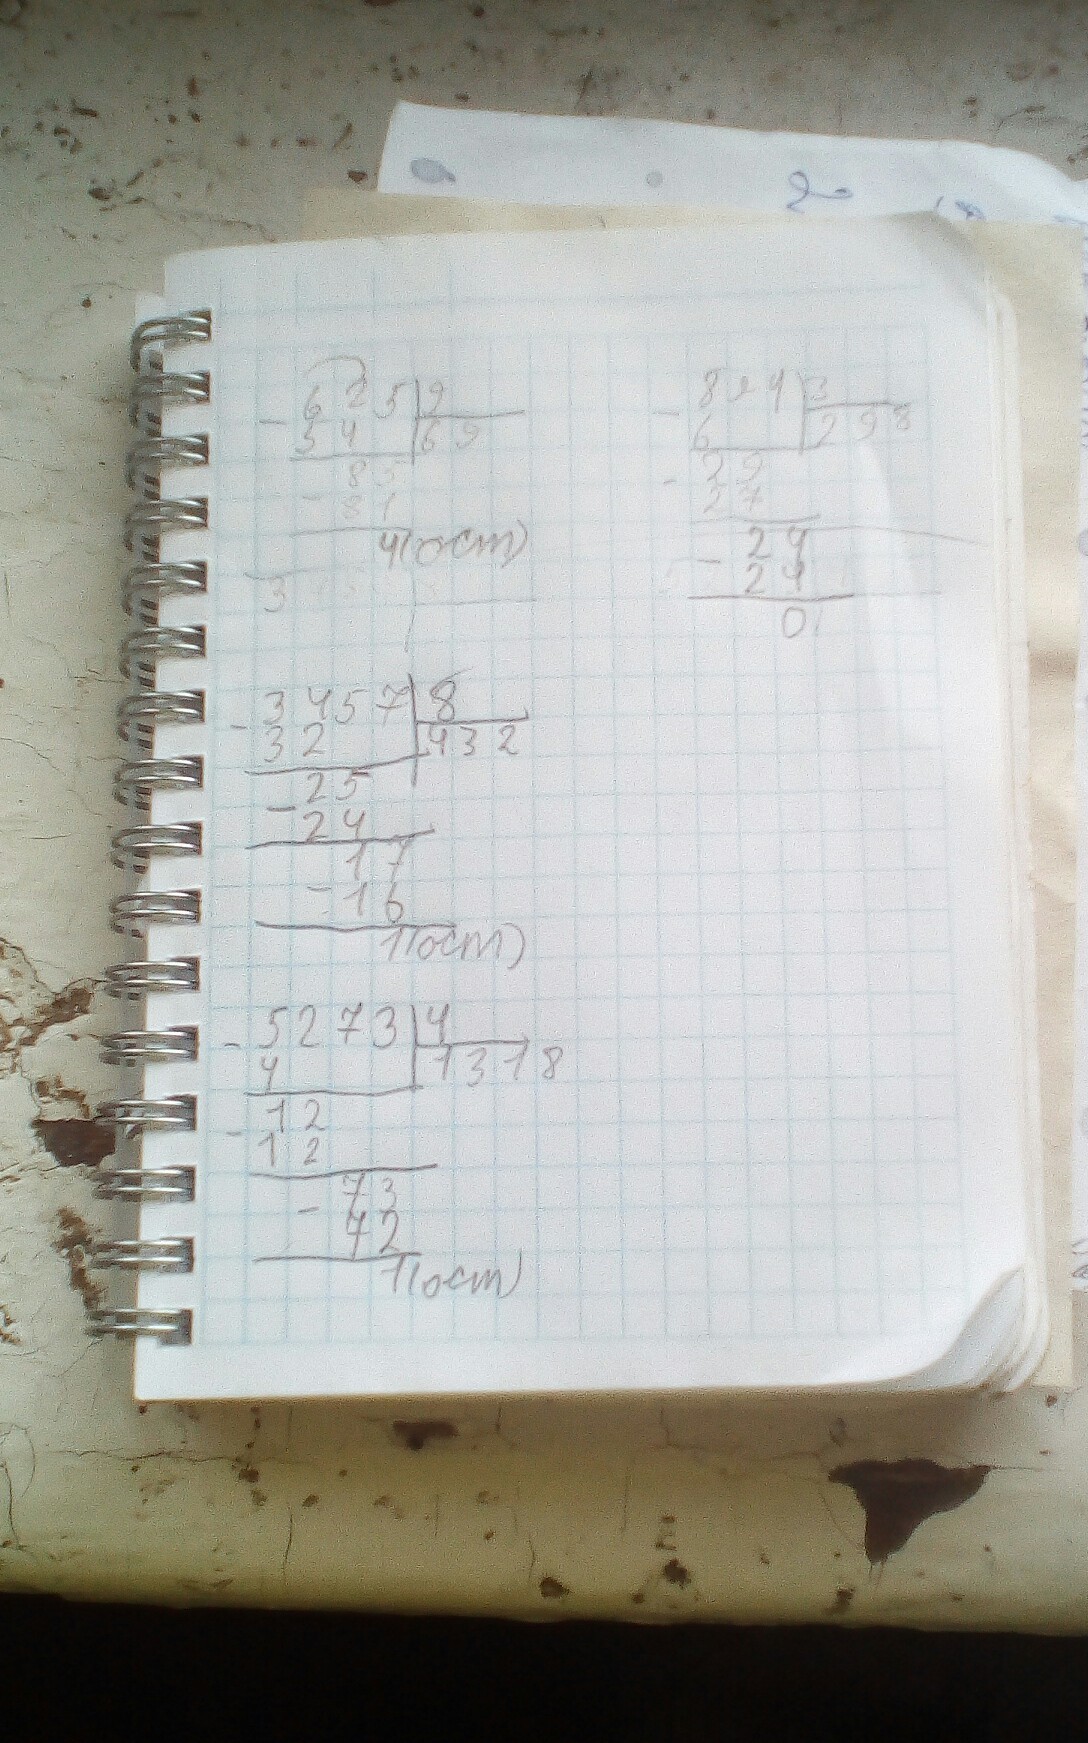 - 625|9
54 |69
- 85
81
4(ост)
3
- 894|3
6 |298
- 29
27
- 24
24
0
- 3457|8
32 |432
- 25
24
17
- 16
1(ост)
- 5273|4
4 |1318
- 12
12
- 73
72
1(ост)